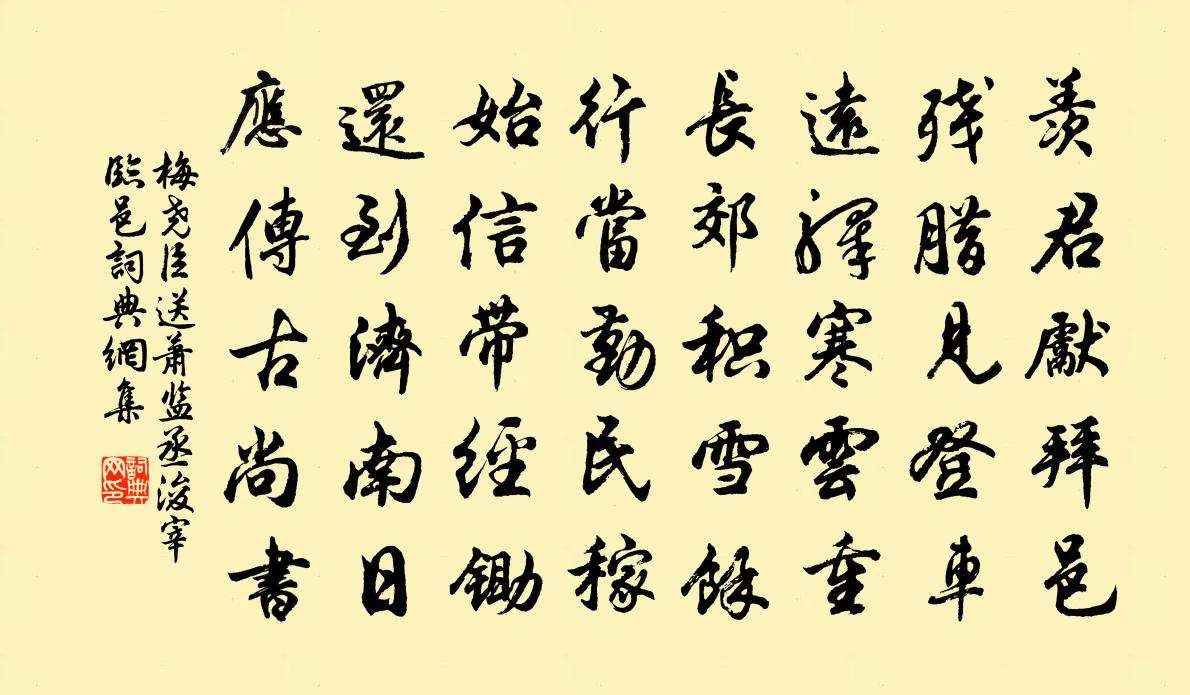 羨君獻拜邑
残腊見登車
遠驛寒雲重
長郊积雪餘
行當勤民稼
始信带經鋤
還到濟南日
應傳古尚書
梅尧臣送萧监丞浚宰
臨邑詞典網集
詞典網印